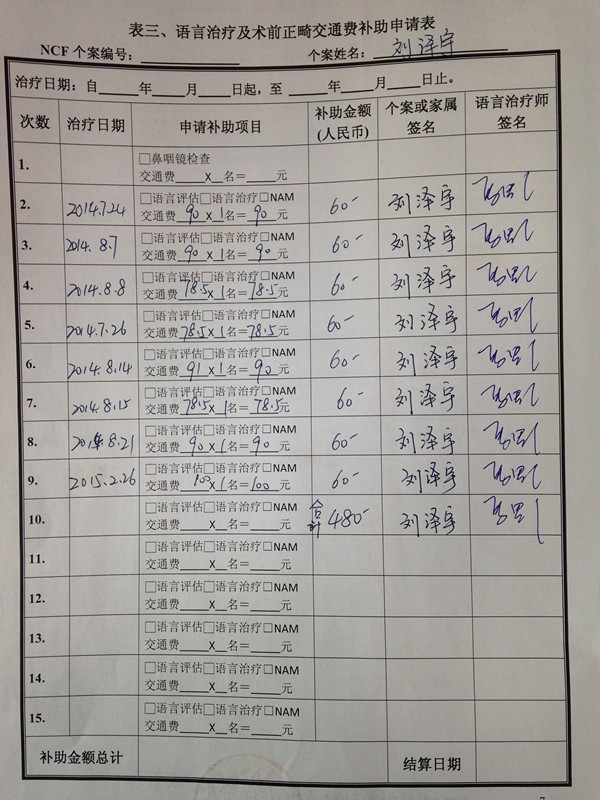 表三、语言治疗及术前正畸交通费补助申请表
NCF 个案编号：__________ 个案姓名：刘泽宇
治疗日期：自____年____月____日起，至____年____月____日止。
次数 治疗日期 申请补助项目 补助金额(人民币) 个案或家属签名 语言治疗师签名
1. □鼻咽镜检查
交通费____X__名＝____元
2. 2014.7.24 □语言评估□语言治疗□NAM 60- 刘泽宇
交通费 90 X 1 名＝ 90 元
3. 2014.8.7 □语言评估□语言治疗□NAM 60- 刘泽宇
交通费 90 X 1 名＝ 90 元
4. 2014.8.8 □语言评估□语言治疗□NAM 60- 刘泽宇
交通费 78.5 X 1 名＝ 78.5 元
5. 2014.7.26 □语言评估□语言治疗□NAM 60- 刘泽宇
交通费 78.5 X 1 名＝ 78.5 元
6. 2014.8.14 □语言评估□语言治疗□NAM 60- 刘泽宇
交通费 91 X 1 名＝ 90 元
7. 2014.8.15 □语言评估□语言治疗□NAM 60- 刘泽宇
交通费 78.5 X 1 名＝ 78.5 元
8. 2014.8.21 □语言评估□语言治疗□NAM 60- 刘泽宇
交通费 90 X 1 名＝ 90 元
9. 2015.2.26 □语言评估□语言治疗□NAM 60- 刘泽宇
交通费 100 X 1 名＝ 100 元
10. □语言评估□语言治疗□NAM 合计 480- 刘泽宇
交通费____X__名＝____元
11. □语言评估□语言治疗□NAM
交通费____X__名＝____元
12. □语言评估□语言治疗□NAM
交通费____X__名＝____元
13. □语言评估□语言治疗□NAM
交通费____X__名＝____元
14. □语言评估□语言治疗□NAM
交通费____X__名＝____元
15. □语言评估□语言治疗□NAM
交通费____X__名＝____元
补助金额总计 结算日期